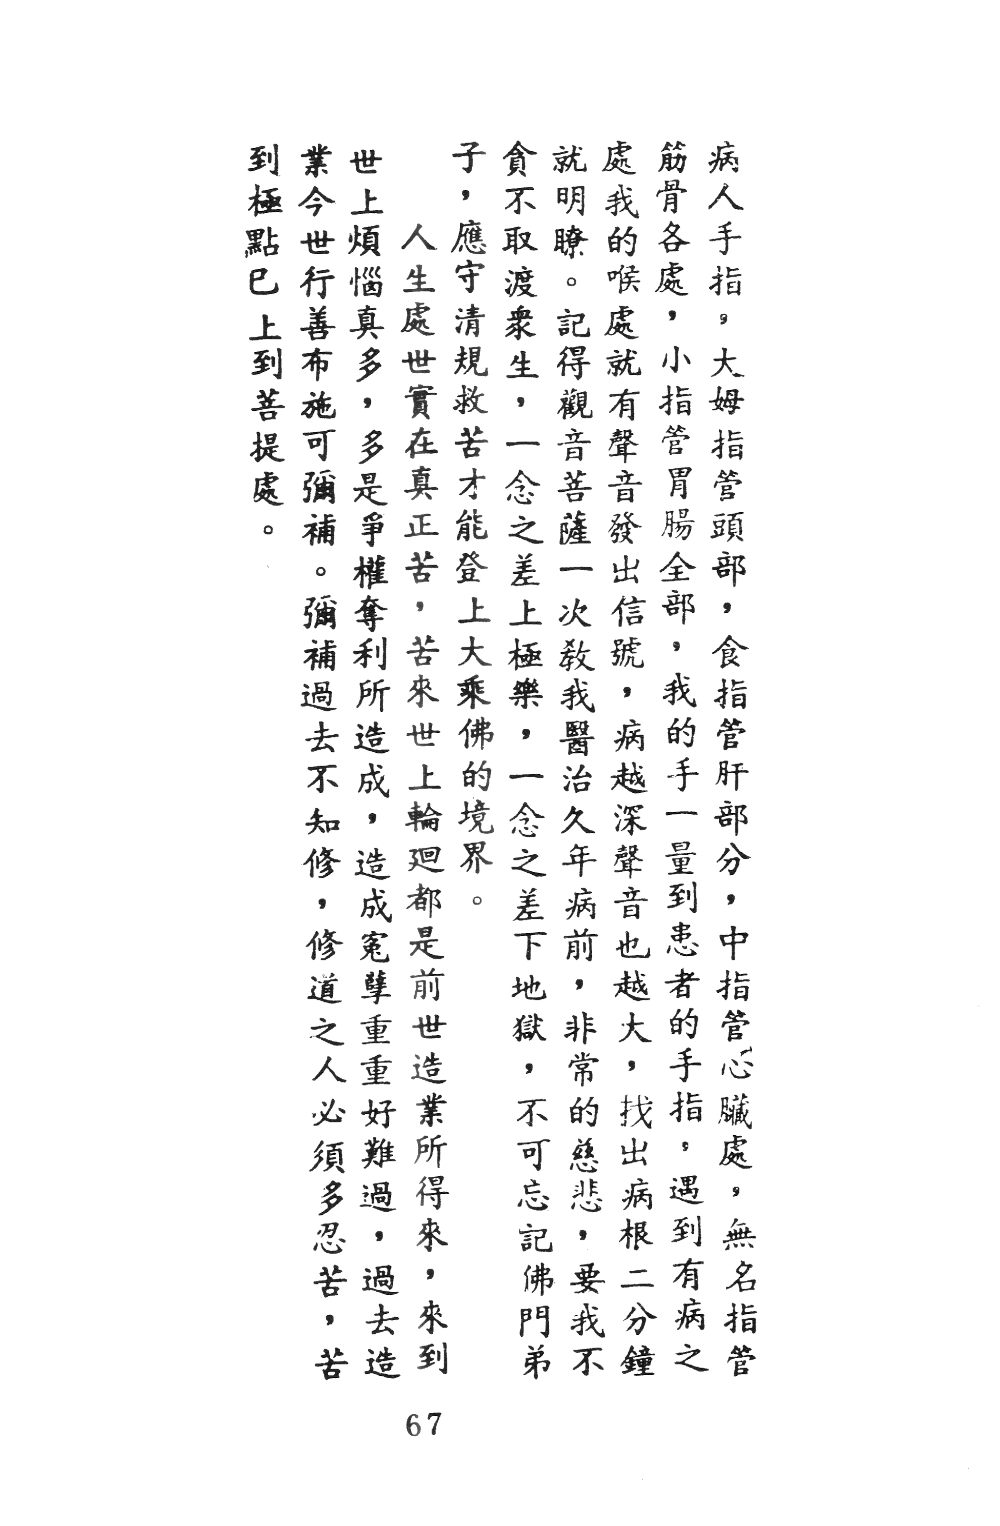 病人手指，大姆指管頭部，食指管肝部分，中指管心臟處，無名指管
筋骨各處，小指管胃腸全部，我的手一量到患者的手指，遇到有病之
處我的喉處就有聲音發出信號，病越深聲音也越大，找出病根二分鐘
就明瞭。記得觀音菩薩一次教我醫治久年病前，非常的慈悲，要我不
貪不取渡衆生，一念之差上極樂，一念之差下地獄，不可忘記佛門弟
子，應守清規救苦才能登上大乘佛的境界。
人生處世實在真正苦，苦來世上輪廻都是前世造業所得來，來到
世上煩惱真多，多是爭權奪利所造成，造成寃孽重重好難過，過去造
業今世行善布施可彌補。彌補過去不知修，修道之人必須多忍苦，苦
到極點已上到菩提處。
67